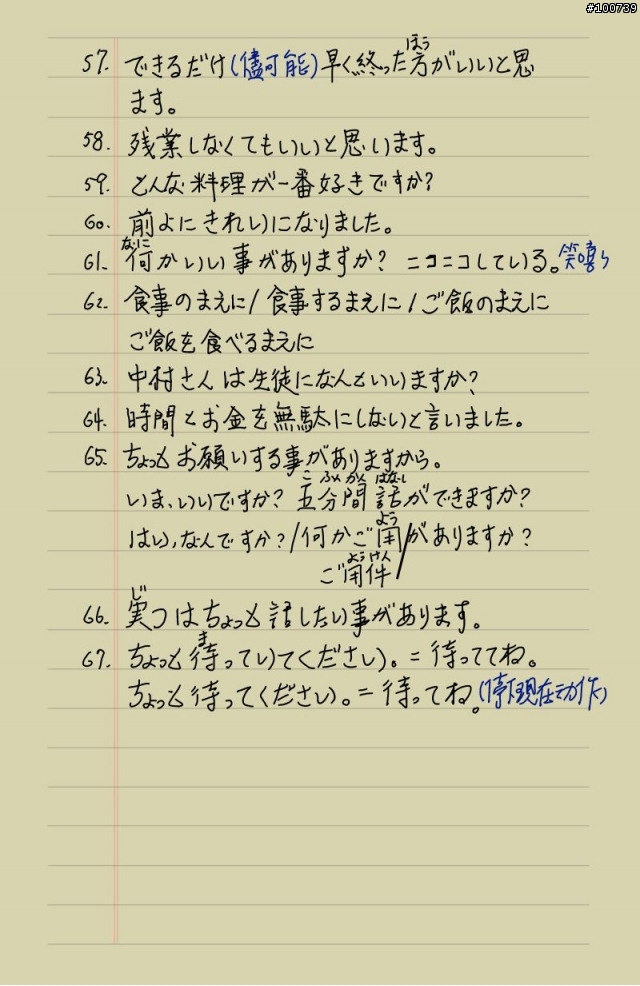 #100739
57. できるだけ(儘可能)早く終った方がいいと思
ほう
ます。
58. 残業しなくてもいいと思います。
59. どんな料理が一番好きですか?
60. 前よにきれいになりました。
なに
61. 何かいい事がありますか? ニコニコしている。笑嘻嘻
62. 食事のまえに/食事するまえに/ご飯のまえに
ご飯を食べるまえに
63. 中村さんは生徒になんといいますか?
64. 時間とお金を無駄にしないと言いました。
65. ちょっとお願いする事がありますから。
ご ふん かん はなし
いま、いいですか? 五分間話ができますか?
よう
はい、なんですか?/何かご用/がありますか?
ようけん
ご用件
じ
66. 実つはちょっと話したい事があります。
ま
67. ちょっと待っていてください。=待っててね。
ちょっと待ってください。=待ってね。(停现在动作)